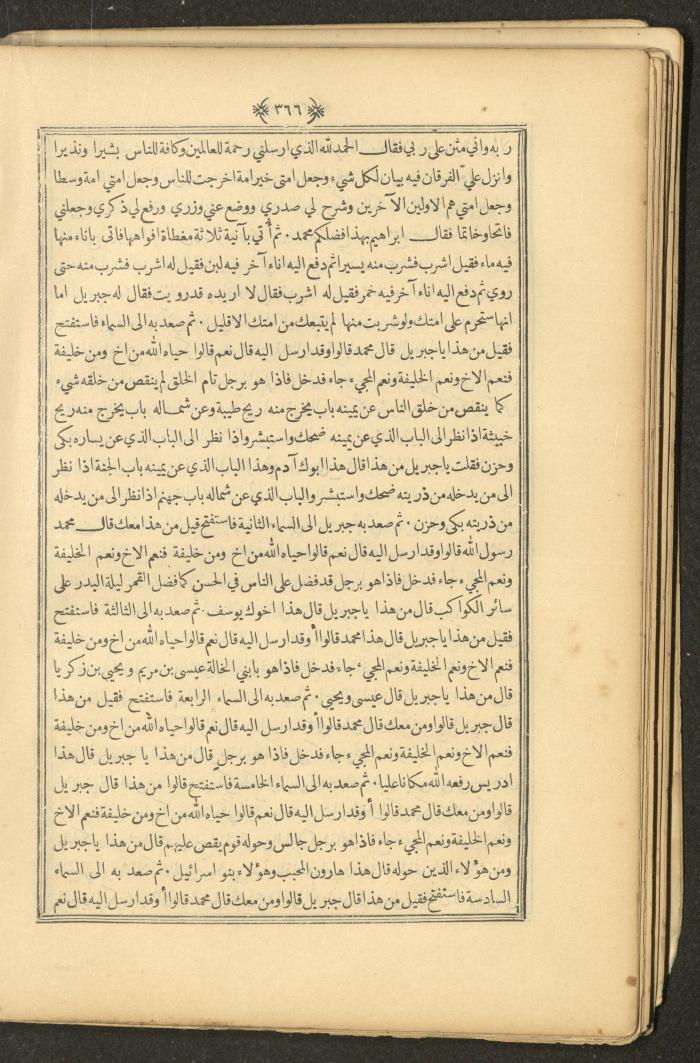 ﴿ ٣٦٦ ﴾
ر به واني مثن على ربي فقال الحمد لله الذي ارسلني رحمة للعالمين وكافة للناس بشيرا ونذيرا
وانزل علي الفرقان فيه بيان لكل شيء وجعل امتي خير امة اخرجت للناس وجعل امتي امة وسطا
وجعل امتي هم الاولين الآخرين وشرح لي صدري ووضع عني وزري ورفع لي ذكري وجعلني
فاتحا وخاتما فقال ابراهيم بهذا فضلكم محمد . ثم أتي بآنية ثلاثة مغطاة افواهها فاتى باناء منها
فيه ماء فقيل اشرب فشرب منه يسيرا ثم دفع اليه اناء آخر فيه لبن فقيل له اشرب فشرب منه حتى
روي ثم دفع اليه اناء آخر فيه خمر فقيل له اشرب فقال لا اريده قد رويت فقال له جبريل اما
انها ستحرم على امتك ولو شربت منها لم يتبعك من امتك الا قليل . ثم صعد به الى السماء فاستفتح
فقيل من هذا يا جبريل قال محمد قالوا وقد ارسل اليه قال نعم قالوا حياه الله من اخ ومن خليفة
فنعم الاخ ونعم الخليفة ونعم المجيء جاء فدخل فاذا هو برجل تام الخلق لم ينقص من خلقه شيء
كما ينقص من خلق الناس عن يمينه باب يخرج منه ريح طيبة وعن شماله باب يخرج منه ريح
خبيثة اذا نظر الى الباب الذي عن يمينه ضحك واستبشر واذا نظر الى الباب الذي عن يساره بكى
وحزن فقلت يا جبريل من هذا قال هذا ابوك آدم وهذا الباب الذي عن يمينه باب الجنة اذا نظر
الى من يدخله من ذريته ضحك واستبشر والباب الذي عن شماله باب جهنم اذا نظر الى من يدخله
من ذريته بكى وحزن . ثم صعد به جبريل الى السماء الثانية فاستفتح قيل من هذا معك قال محمد
رسول الله قالوا وقد ارسل اليه قال نعم قالوا حياه الله من اخ ومن خليفة فنعم الاخ ونعم الخليفة
ونعم المجيء جاء فدخل فاذا هو برجل قد فضل على الناس في الحسن كما فضل القمر ليلة البدر على
سائر الكواكب قال من هذا يا جبريل قال هذا اخوك يوسف . ثم صعد به الى الثالثة فاستفتح
فقيل من هذا يا جبريل قال هذا محمد قالوا أوقد ارسل اليه قال نعم قالوا حياه الله من اخ ومن خليفة
فنعم الاخ ونعم الخليفة ونعم المجيء جاء فدخل فاذا هو بابني الخالة عيسى بن مريم ويحيى بن زكريا
قال من هذا يا جبريل قال عيسى ويحيى . ثم صعد به الى السماء الرابعة فاستفتح فقيل من هذا
قال جبريل قالوا ومن معك قال محمد قالوا أوقد ارسل اليه قال نعم قالوا حياه الله من اخ ومن خليفة
فنعم الاخ ونعم الخليفة ونعم المجيء جاء فدخل فاذا هو برجل قال من هذا يا جبريل قال هذا
ادريس رفعه الله مكانا عليا . ثم صعد به الى السماء الخامسة فاستفتح قالوا من هذا قال جبريل
قالوا ومن معك قال محمد قالوا أوقد ارسل اليه قال نعم قالوا حياه الله من اخ ومن خليفة فنعم الاخ
ونعم الخليفة ونعم المجيء جاء فاذا هو برجل جالس وحوله قوم يقص عليهم قال من هذا يا جبريل
ومن هؤلاء الذين حوله قال هذا هارون المحبب وهؤلاء بنو اسرائيل . ثم صعد به الى السماء
السادسة فاستفتح فقيل من هذا قال جبريل قالوا ومن معك قال محمد قالوا أوقد ارسل اليه قال نعم